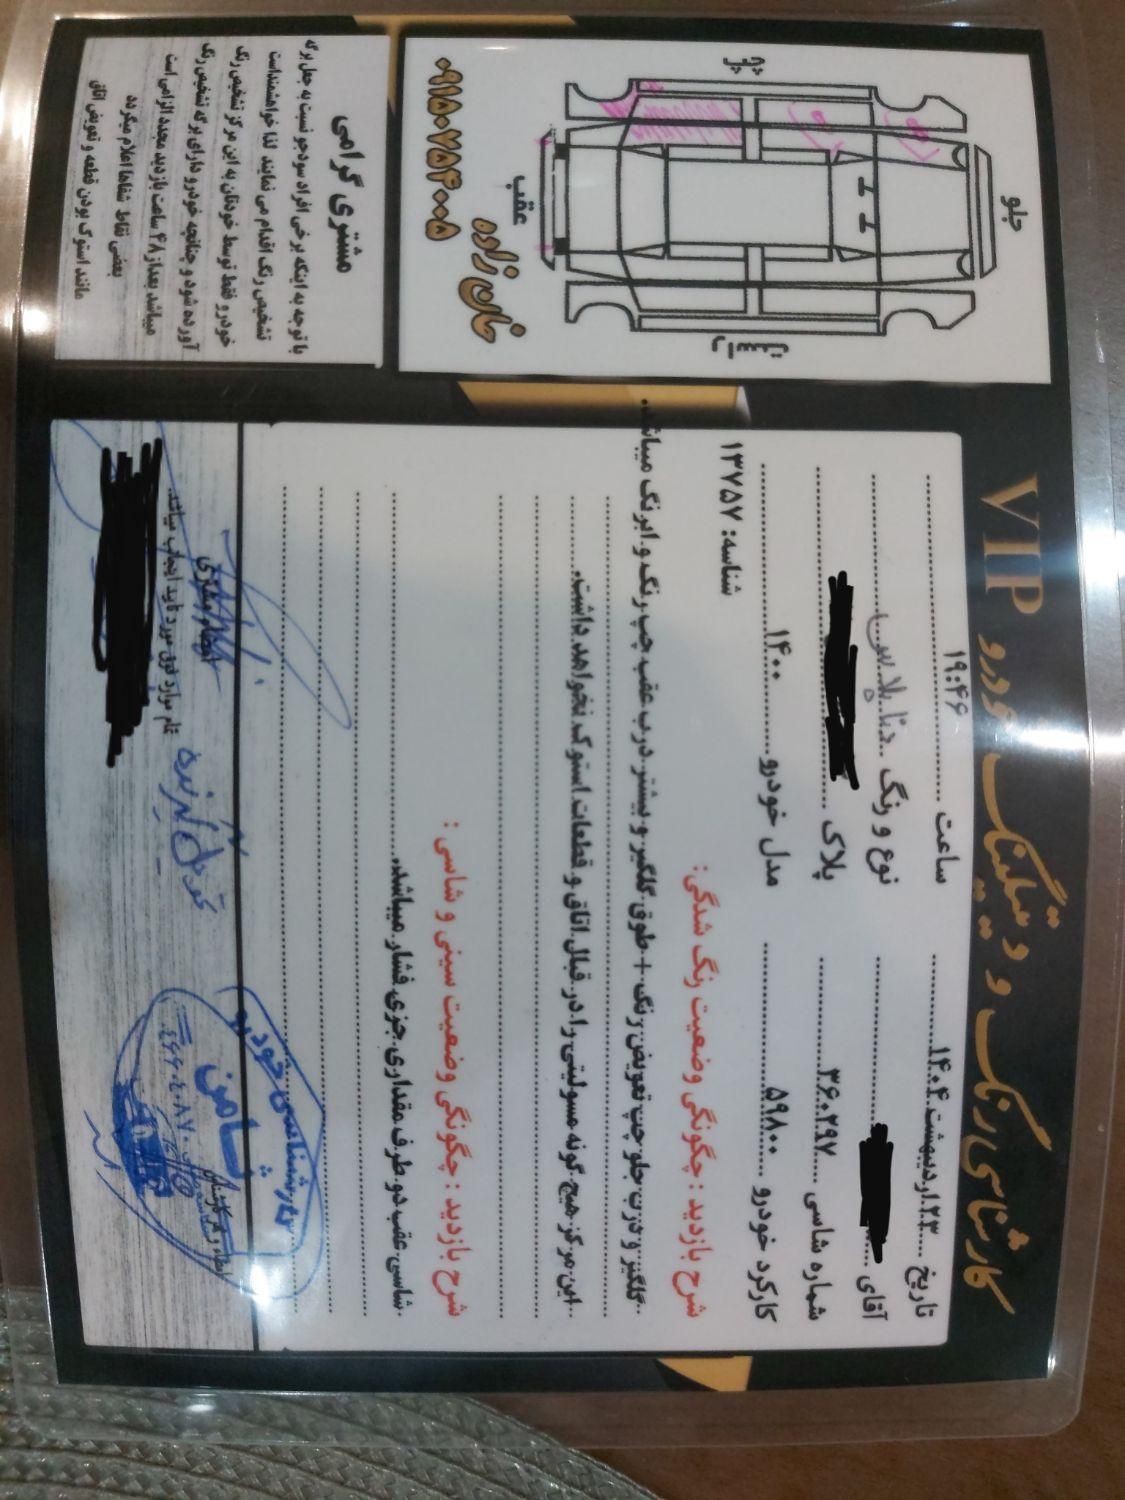 کارشناسی رنگ و دیتیلینگ خودرو VIP
تاریخ ۲۳.اردیبهشت.۱۴۰۴ ساعت ۱۹:۴۶
آقای نوع و رنگ دنا پلاس
شماره شاسی ۳۶۰۲۹۷ پلاک
کارکرد خودرو ۵۹۸۰۰ مدل خودرو ۱۴۰۰
شناسه: ۱۳۷۵۷
شرح بازدید : چگونگی وضعیت رنگ شدگی:
گلگیر و درب جلو چپ تعویض رنگ + طوق گلگیر و بیشتر درب عقب چپ رنگ و ابرنگ میباشد.
این مرکز هیچ گونه مسولیتی را در قبال اتاق و قطعات استوک نخواهد داشت.
شرح بازدید : چگونگی وضعیت سینی و شاسی :
شاسی عقب دو طرف مقداری جزی فشار میباشد.
تمام موارد فوق مورد تایید اینجانب میباشد.
امضاء مشتری
کارشناسی خودرو
ثامن
جلو
عقب
چپ
خان زاده
۰۹۱۵۰۷۵۴۰۰۵
مشتری گرامی
با توجه به اینکه برخی افراد سودجو نسبت به جعل برگه
تشخیص رنگ اقدام می نمایند لذا خواهشمنداست
خودرو فقط توسط خودتان به این مرکز تشخیص رنگ
آورده شود و چنانچه خودرو دارای برگه تشخیص رنگ
میباشد بعد از ۴۸ ساعت بازدید مجدد الزامی است
بعضی نقاط شفاها اعلام میگردد
مانند استوک بودن قطعه و تعویض اتاق